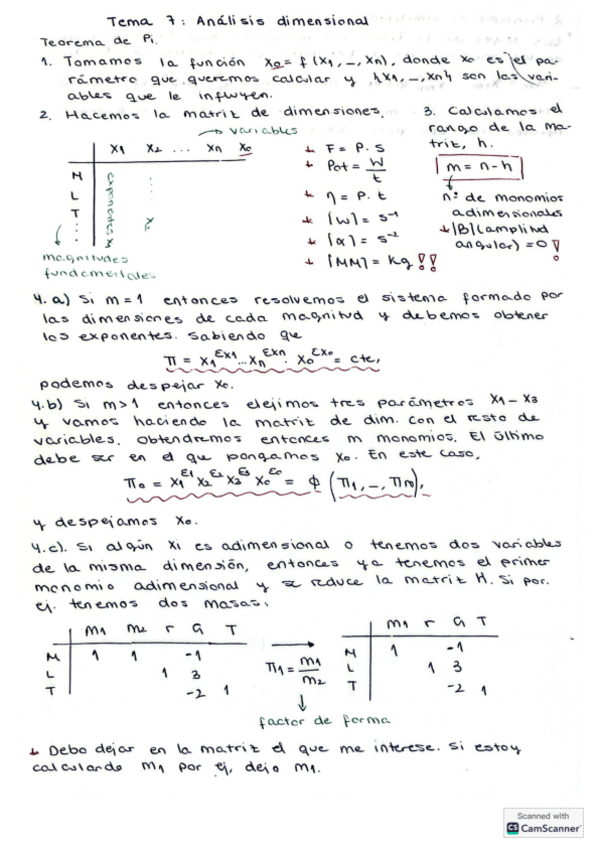 Tema 7: Análisis dimensional
Teorema de Pi.
1. Tomamos la función x₀ = f(x₁, –, xₙ), donde x₀ es el pa-
rámetro que queremos calcular y {x₁, –, xₙ} son las vari-
ables que le influyen.
2. Hacemos la matriz de dimensiones.
→ variables
x₁ x₂ ... xₙ x₀
M
L
T
exponentes
magnitudes
fundamentales
F = P · S
Pot = W/t
η = P · t
[W] = s⁻¹
[α] = s⁻²
[MM] = kg!!
3. Calculamos el
rango de la ma-
triz, h.
m = n - h
nº de monomios
adimensionales
|B| (amplitud
angular) = 0!
4. a) Si m = 1 entonces resolvemos el sistema formado por
las dimensiones de cada magnitud y debemos obtener
los exponentes. Sabiendo que
Π = x₁^εx₁ ... xₙ^εxₙ · x₀^εx₀ = cte,
podemos despejar x₀.
4. b) Si m > 1 entonces elejimos tres parámetros x₁ – x₃
y vamos haciendo la matriz de dim. con el resto de
variables. Obtendremos entonces m monomios. El último
debe ser en el que pongamos x₀. En este caso,
Π₀ = x₁^ε₁ x₂^ε₂ x₃^ε₃ x₀^ε₀ = ϕ (Π₁, –, Πm),
y despejamos x₀.
4. c). Si algún xi es adimensional o tenemos dos variables
de la misma dimensión, entonces ya tenemos el primer
monomio adimensional y se reduce la matriz H. Si por.
ej. tenemos dos masas:
m₁ m₂ r G T
M 1 1 -1
L 1 3
T -2 1
Π₁ = m₁/m₂
factor de forma
m₁ r G T
M 1 -1
L 1 3
T -2 1
Debo dejar en la matriz el que me interese. Si estoy
calculando m₁ por ej, dejo m₁.
Scanned with
CS CamScanner